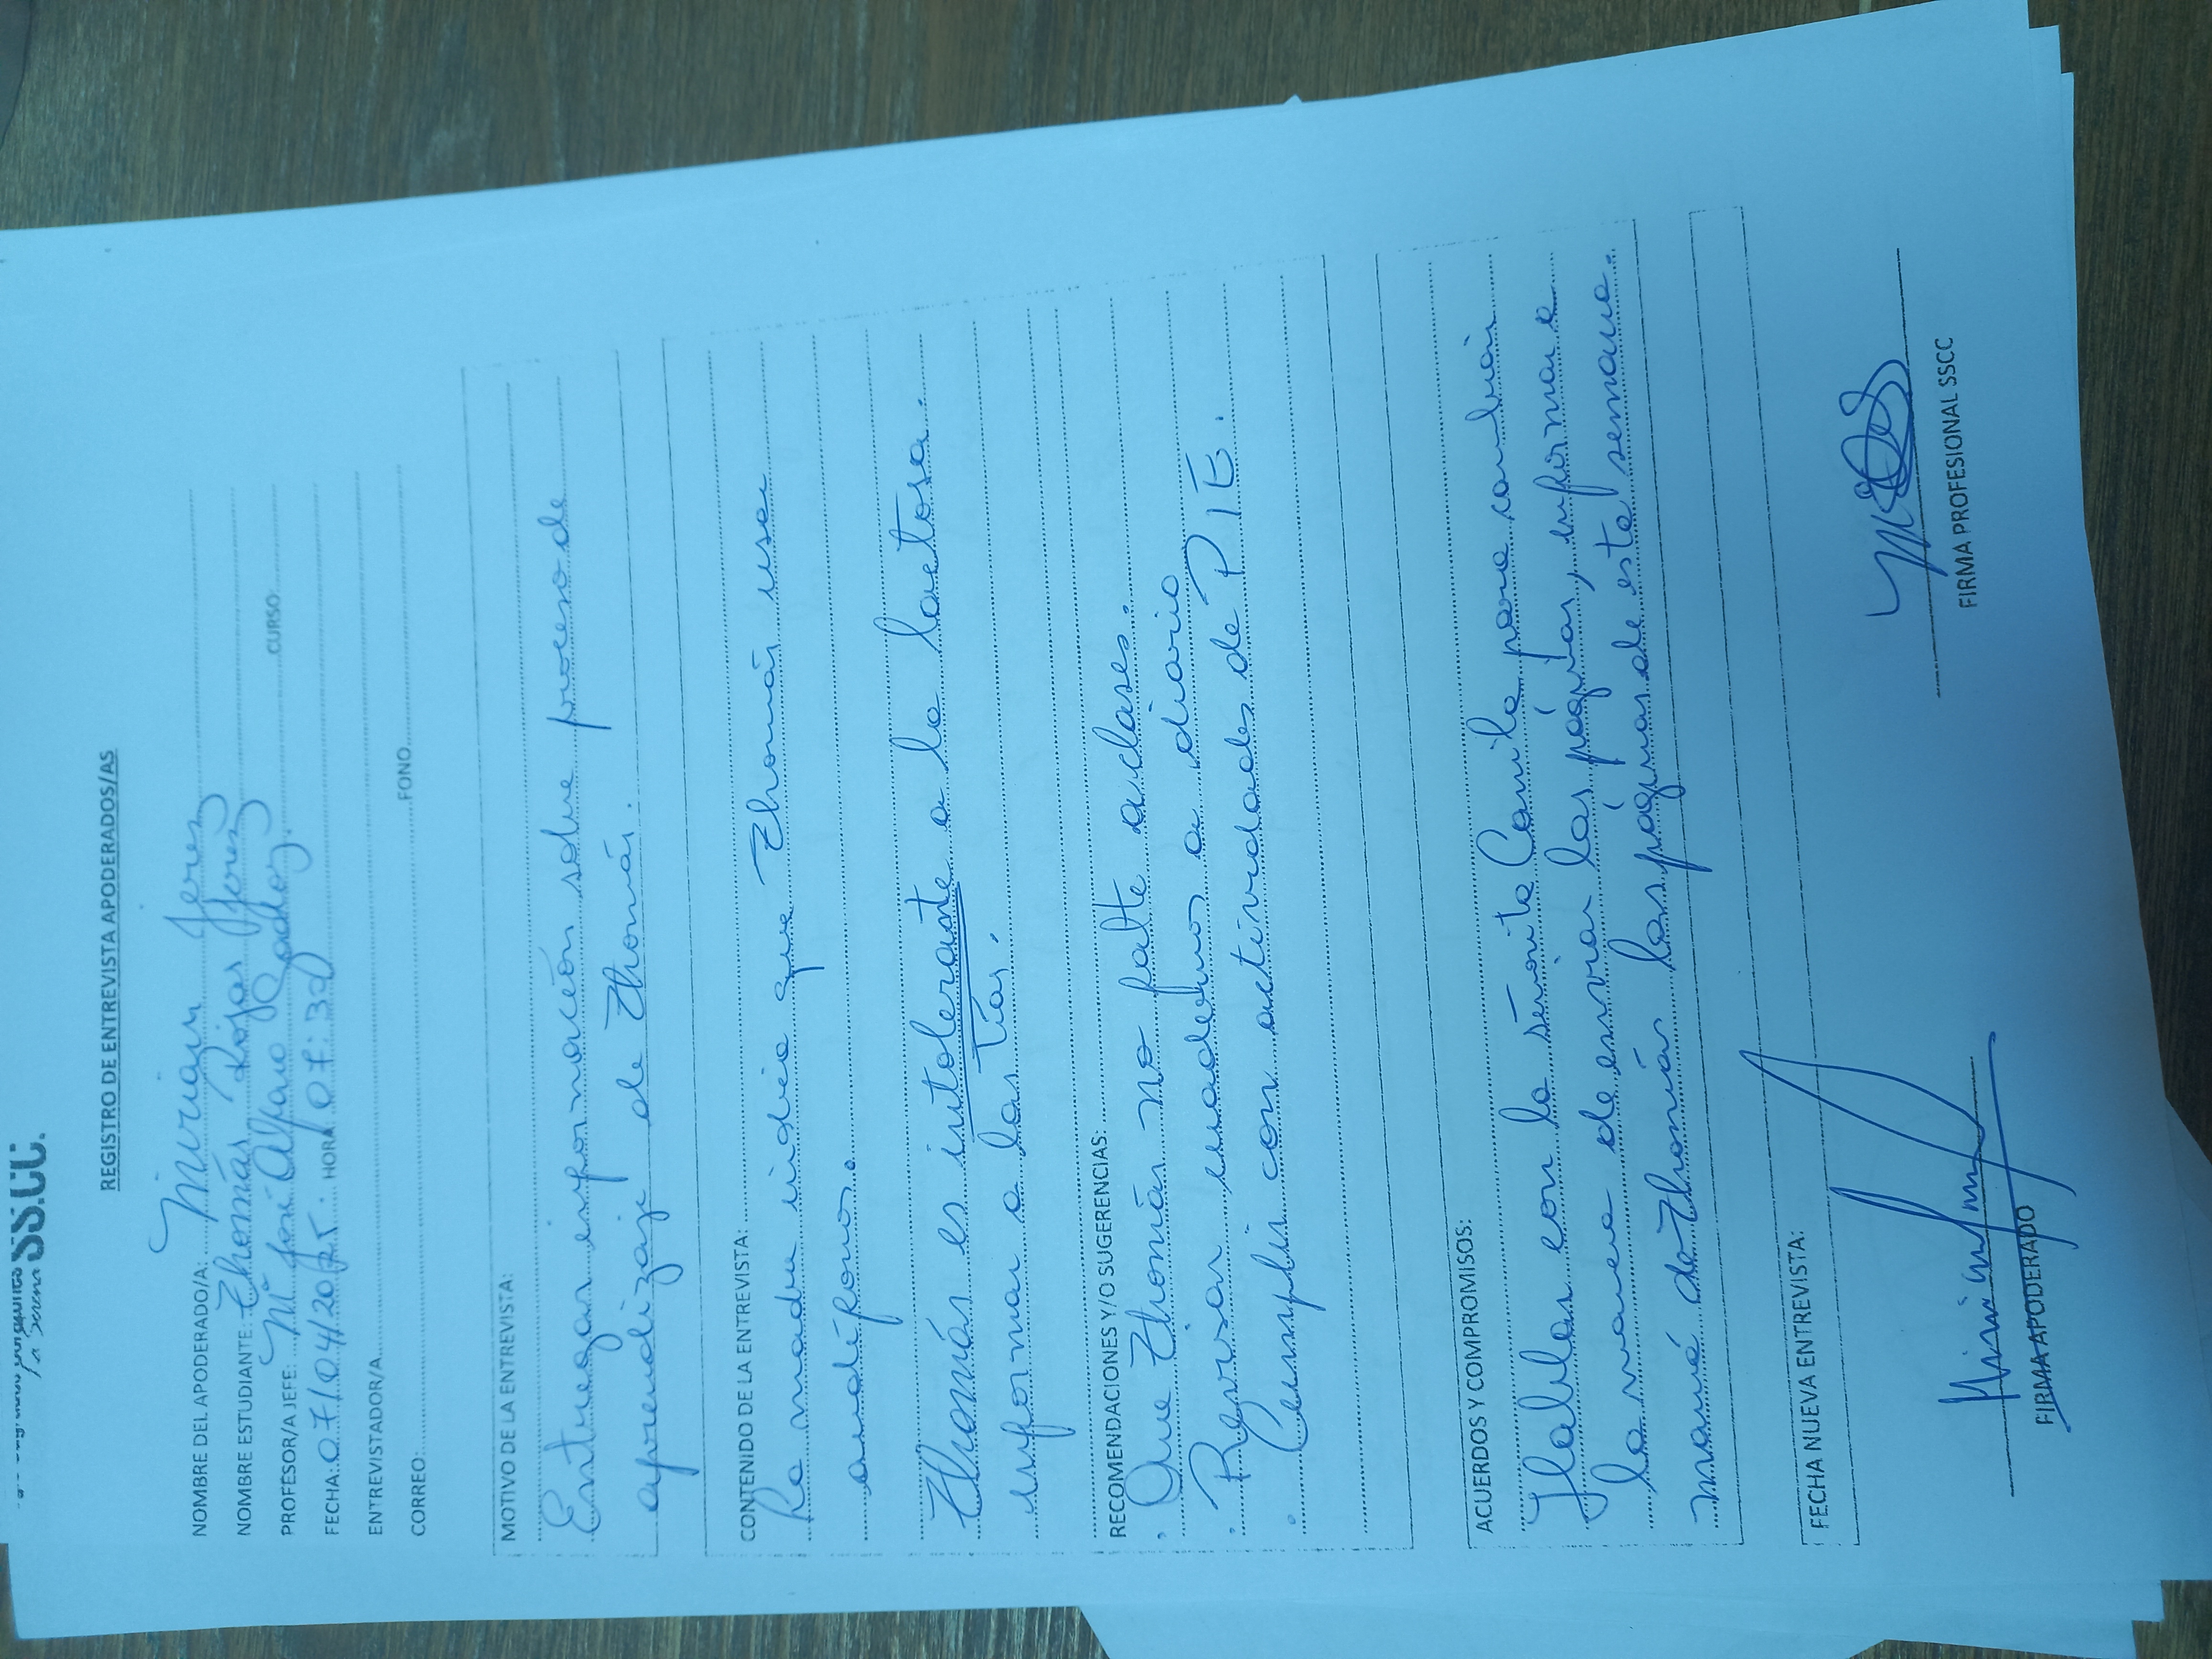 SS.CC.
La Serena
REGISTRO DE ENTREVISTA APODERADOS/AS
NOMBRE DEL APODERADO/A: Miriam Jerez
NOMBRE ESTUDIANTE: Thomás Rojas Jerez
PROFESOR/A JEFE: Mª José Alfaro Godoy. CURSO
FECHA: 07/04/2025. HORA 07:30
ENTREVISTADOR/A
CORREO: FONO
MOTIVO DE LA ENTREVISTA:
Entregar información sobre proceso de
aprendizaje de Thomás.
CONTENIDO DE LA ENTREVISTA:
La madre indica que Thomás usa
audífonos.
Thomás es intolerante a la lactosa.
informar a las Tías.
RECOMENDACIONES Y/O SUGERENCIAS:
. Que Thomás no falte a clases.
. Revisar cuaderno a diario
. Cumplir con actividades de PIE.
ACUERDOS Y COMPROMISOS:
Hablar con la señorita Camila para cambiar
la manera de enviar las páginas, informar a
mamá de Thomás las páginas de esta semana.
FECHA NUEVA ENTREVISTA:
FIRMA APODERADO
FIRMA PROFESIONAL SSCC